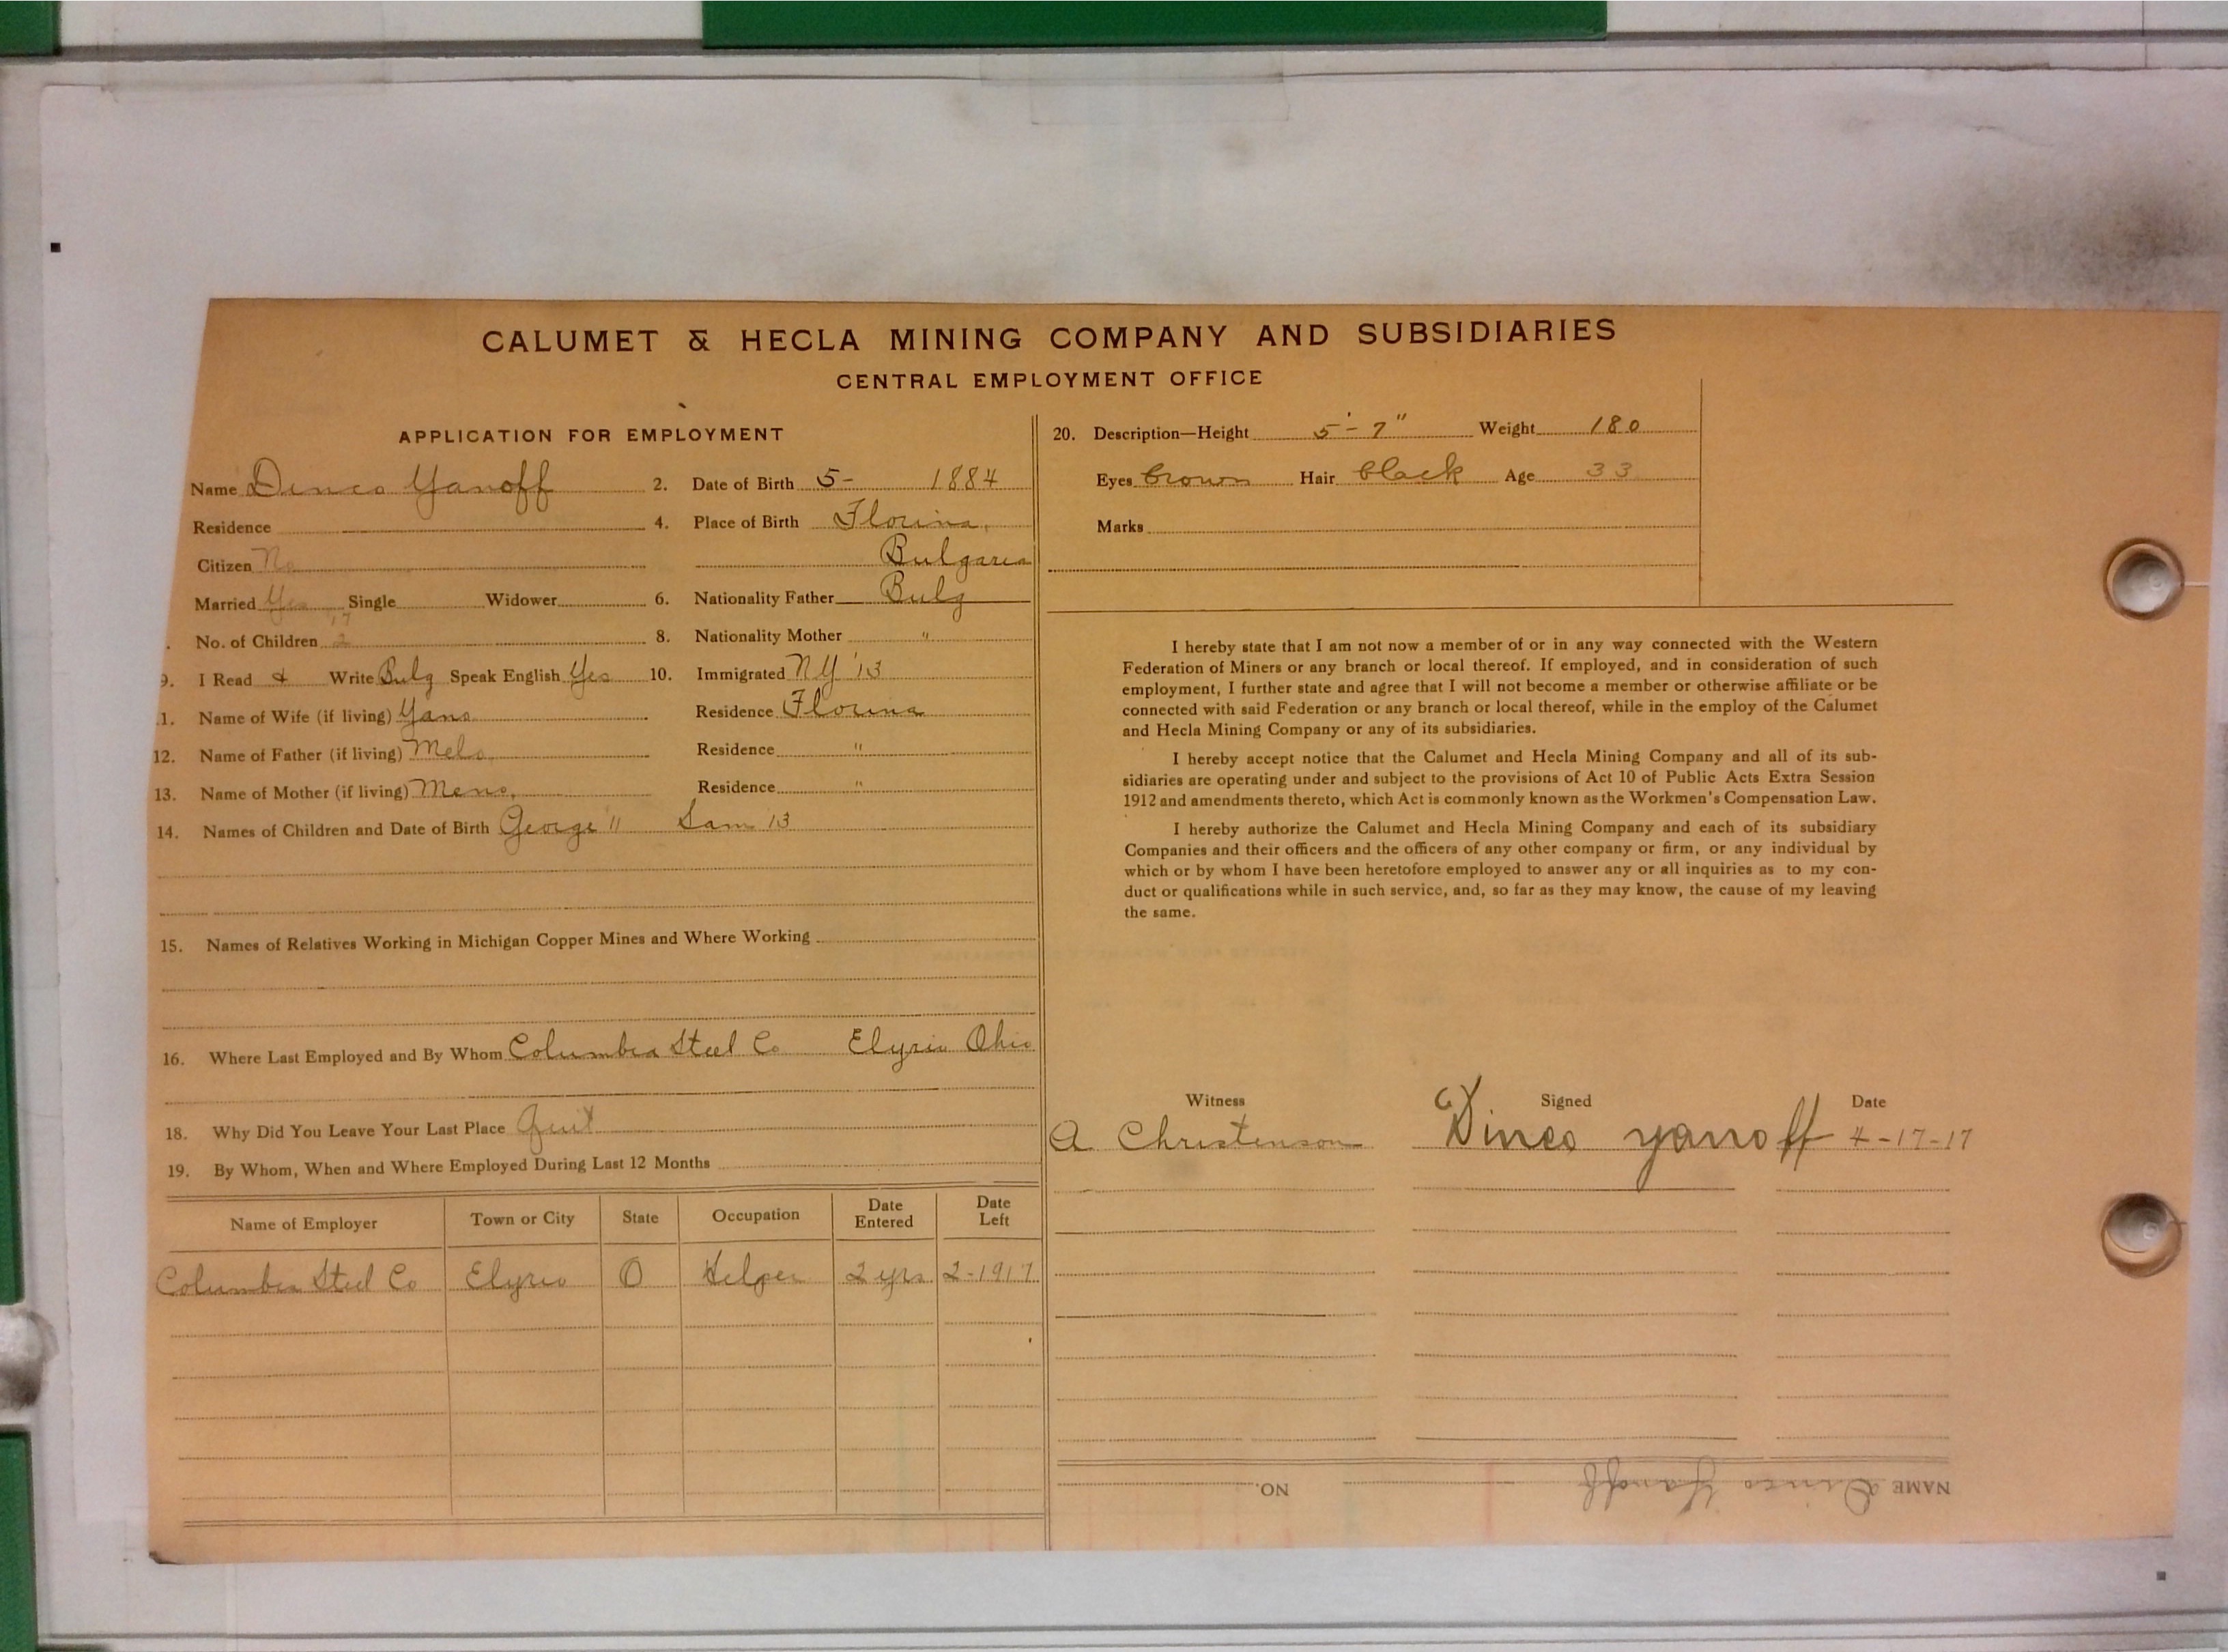 CALUMET & HECLA MINING COMPANY AND SUBSIDIARIES
CENTRAL EMPLOYMENT OFFICE
APPLICATION FOR EMPLOYMENT
Name Dinco Yanoff 2. Date of Birth 5- 1884
Residence 4. Place of Birth Florina,
Citizen No Bulgaria
Married Yes Single Widower 6. Nationality Father Bulg
No. of Children 2 8. Nationality Mother "
9. I Read & Write Bulg Speak English Yes 10. Immigrated NY '13
11. Name of Wife (if living) Yana Residence Florina
12. Name of Father (if living) Mela Residence "
13. Name of Mother (if living) Mena Residence "
14. Names of Children and Date of Birth George 11 Sam 13
15. Names of Relatives Working in Michigan Copper Mines and Where Working
16. Where Last Employed and By Whom Columbia Steel Co Elyria Ohio
18. Why Did You Leave Your Last Place Quit
19. By Whom, When and Where Employed During Last 12 Months
Name of Employer Town or City State Occupation Date Entered Date Left
Columbia Steel Co Elyria O Helper 2 yrs 2-1917
20. Description—Height 5'-7" Weight 180
Eyes brown Hair black Age 33
Marks
I hereby state that I am not now a member of or in any way connected with the Western
Federation of Miners or any branch or local thereof. If employed, and in consideration of such
employment, I further state and agree that I will not become a member or otherwise affiliate or be
connected with said Federation or any branch or local thereof, while in the employ of the Calumet
and Hecla Mining Company or any of its subsidiaries.
I hereby accept notice that the Calumet and Hecla Mining Company and all of its sub-
sidiaries are operating under and subject to the provisions of Act 10 of Public Acts Extra Session
1912 and amendments thereto, which Act is commonly known as the Workmen's Compensation Law.
I hereby authorize the Calumet and Hecla Mining Company and each of its subsidiary
Companies and their officers and the officers of any other company or firm, or any individual by
which or by whom I have been heretofore employed to answer any or all inquiries as to my con-
duct or qualifications while in such service, and, so far as they may know, the cause of my leaving
the same.
Witness Signed Date
A Christenson Dinco yanoff 4-17-17
NAME Dinco Yanoff NO.